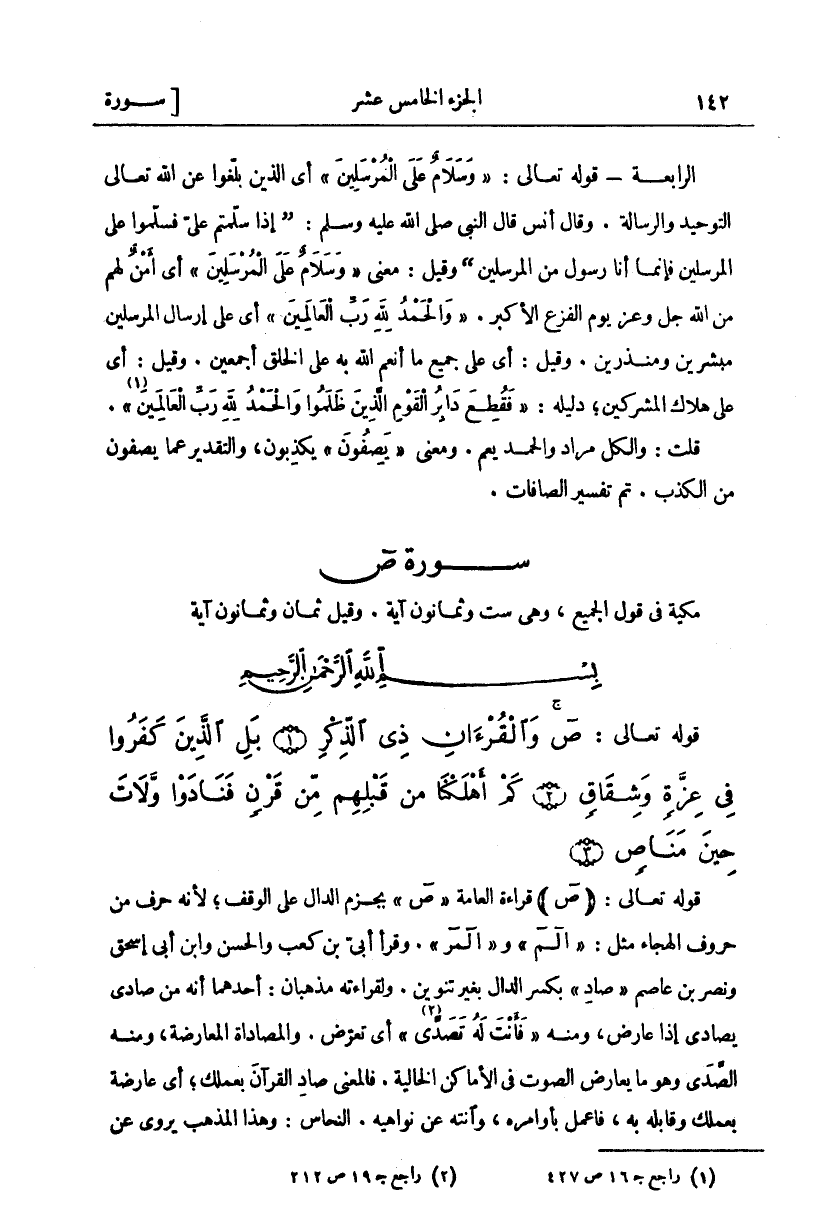 ١٤٢ الجزء الخامس عشر [ ســورة
الرابعــة — قوله تعـالى : « وَسَلَامٌ عَلَى الْمُرْسَلِينَ » أى الذين بلّغوا عن الله تعـالى
التوحيد والرسالة . وقال أنس قال النبى صلى الله عليه وسـلم : ” إذا سلّمتم علىّ فسلّموا على
المرسلين فإنمـا أنا رسول من المرسلين “ وقيل : معنى « وَسَلَامٌ عَلَى الْمُرْسَلِينَ » أى أَمْنٌ لهم
من الله جل وعز يوم الفزع الأكبر . « وَالْحَمْدُ لِلَّهِ رَبِّ الْعَالَمِينَ » أى على إرسال المرسلين
مبشرين ومنــذرين . وقيل : أى على جميع ما أنعم الله به على الخلق أجمعين . وقيل : أى
على هلاك المشركين؛ دليله : « فَقُطِعَ دَابِرُ الْقَوْمِ الَّذِينَ ظَلَمُوا وَالْحَمْدُ لِلَّهِ رَبِّ الْعَالَمِينَ(١) » .
قلت : والكل مراد والحمـد يعم . ومعنى « يَصِفُونَ » يكذبون، والتقدير عما يصفون
من الكذب . تم تفسير الصافات .
ســـورة صٓ
مكية فى قول الجميع ، وهى ست وثمـانون آية . وقيل ثمـان وثمـانون آية
بِسْــمِ اللَّهِ الرَّحْمَٰنِ الرَّحِيمِ
قوله تعـالى : صٓ ۚ وَالْقُرْءَانِ ذِى الذِّكْرِ ﴿١﴾ بَلِ الَّذِينَ كَفَرُوا
فِى عِزَّةٍ وَشِقَاقٍ ﴿٢﴾ كَمْ أَهْلَكْنَا مِن قَبْلِهِم مِّن قَرْنٍ فَنَادَوا وَّلَاتَ
حِينَ مَنَاصٍ ﴿٣﴾
قوله تعـالى : ( صٓ ) قراءة العامة « صٓ » بجـزم الدال على الوقف؛ لأنه حرف من
حروف الهجاء مثل : « الٓـمٓ » و « الٓـمٓرٰ » . وقرأ أبىّ بن كعب والحسن وابن أبى إسحق
ونصر بن عاصم « صادِ » بكسر الدال بغير تنوين . ولقراءته مذهبان : أحدهما أنه من صادى
يصادى إذا عارض، ومنــه « فَأَنْتَ لَهُ تَصَدَّى(٢) » أى تعرّض . والمصاداة المعارضة، ومنــه
الصَّدَى وهو ما يعارض الصوت فى الأماكن الخالية . فالمعنى صادِ القرآنَ بعملك؛ أى عارضة
بعملك وقابله به ، فاعمل بأوامره ، وآنته عن نواهيه . النحاس : وهذا المذهب يروى عن
(١) راجع جـ ١٦ ص ٤٢٧ (٢) راجع جـ ١٩ ص ٢١٢